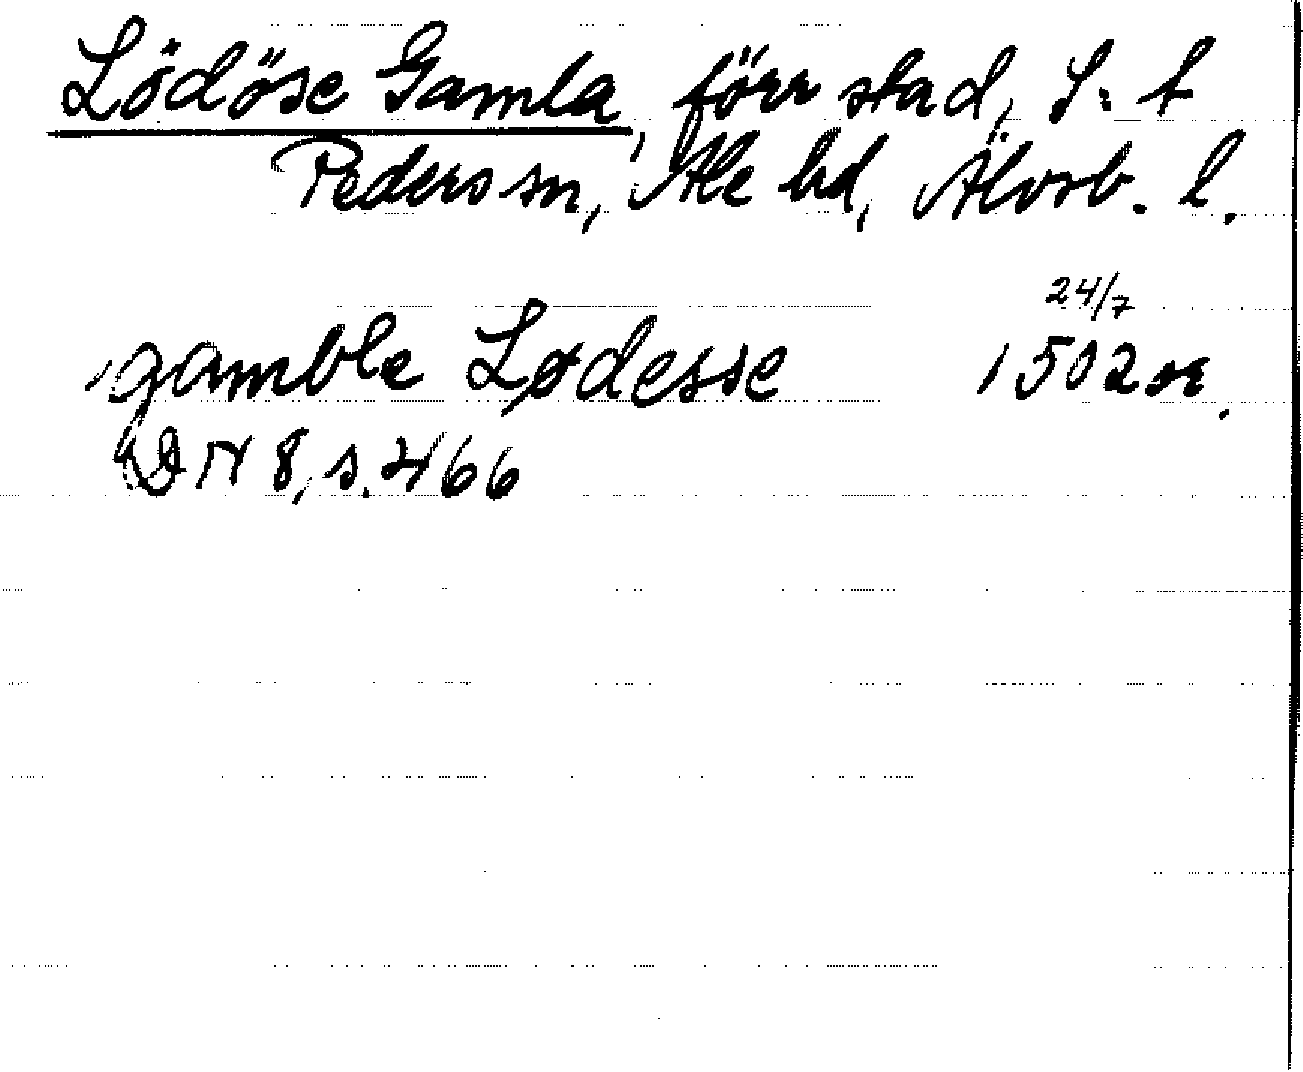 Lödöse Gamla, förr stad, S:t
Peders sn, Ale hd, Älvsb. l.
24/7
gamble Lødesse 1502 or.
DN 8, s. 466